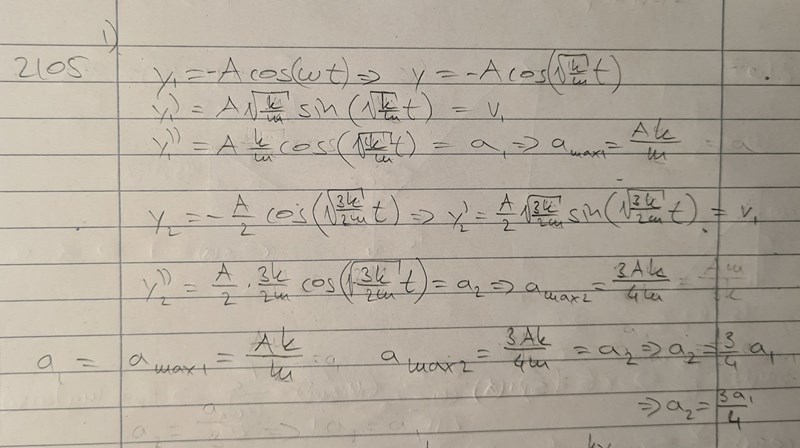 1)
2105 y₁ = -A cos(ωt) ⇒ y = -A cos(√(k/m) t)
y₁' = A √(k/m) sin (√(k/m) t) = v₁
y₁'' = A k/m cos (√(k/m) t) = a₁ ⇒ a_max1 = Ak/m
y₂ = - A/2 cos (√(3k/2m) t) ⇒ y₂' = A/2 √(3k/2m) sin (√(3k/2m) t) = v₁
y₂'' = A/2 · 3k/2m cos (√(3k/2m) t) = a₂ ⇒ a_max2 = 3Ak/4m
a₁ = a_max1 = Ak/m a_max2 = 3Ak/4m = a₂ ⇒ a₂ = 3/4 a₁
⇒ a₂ = 3a₁/4